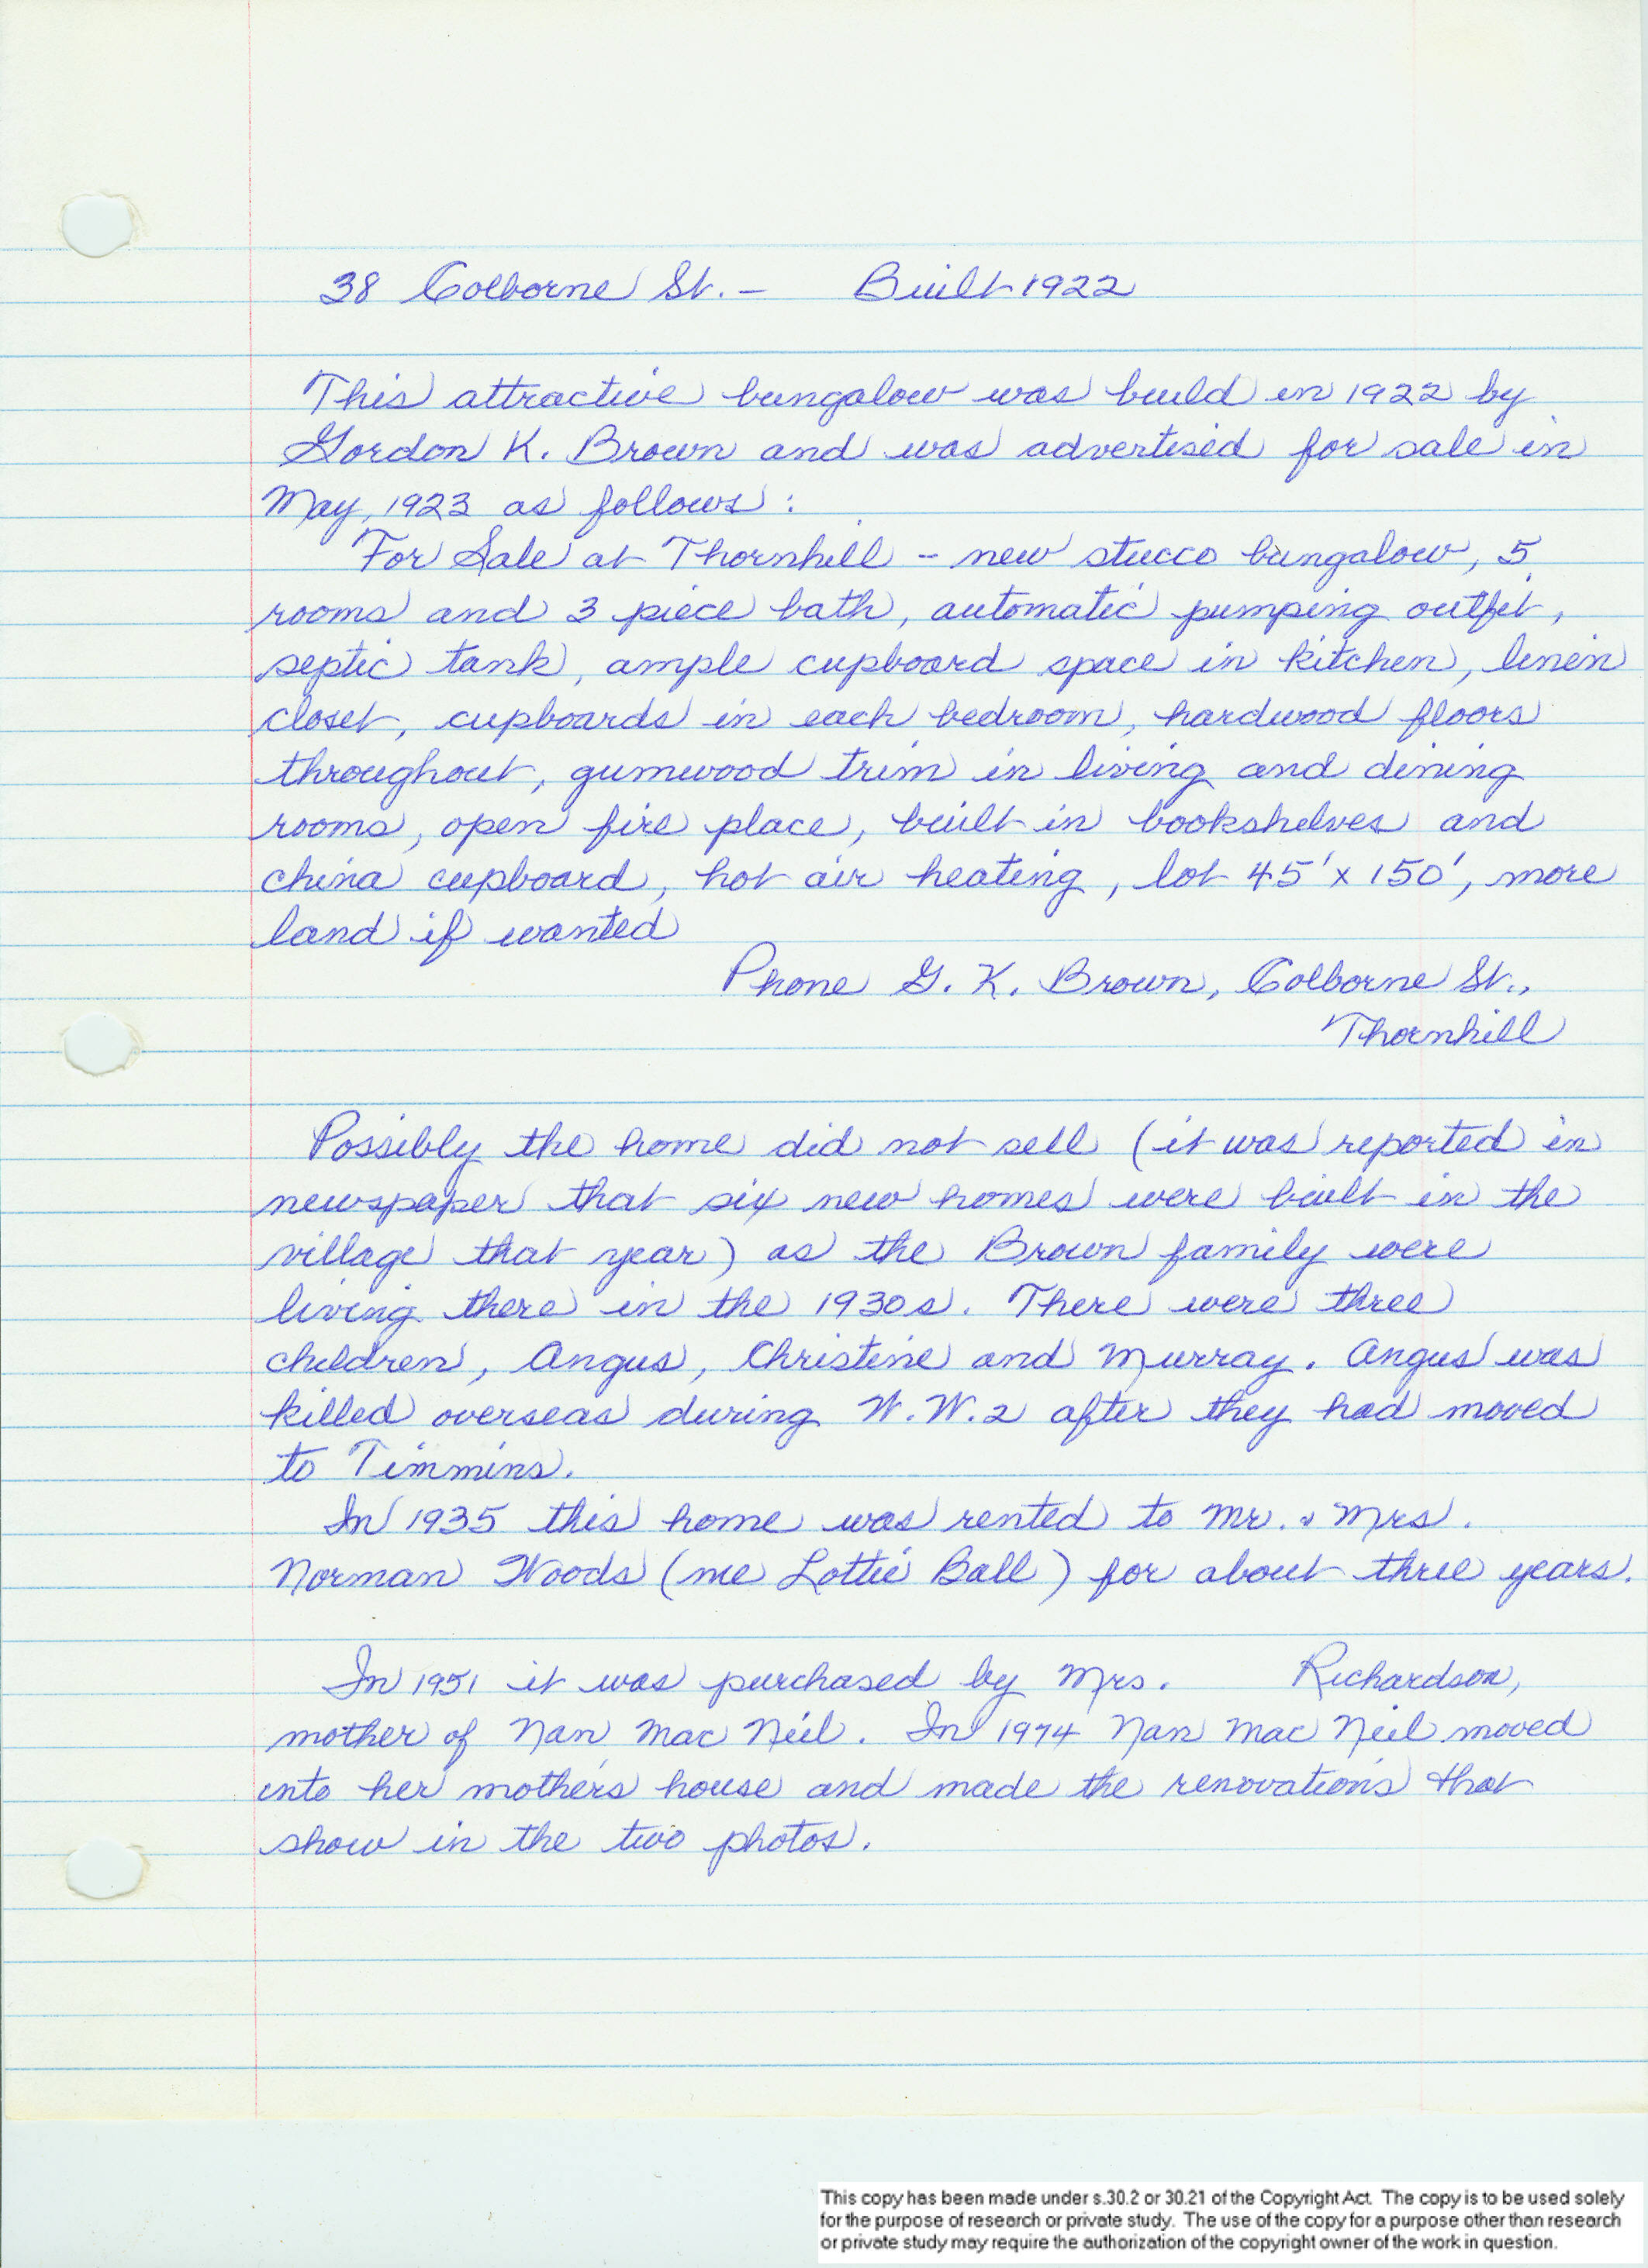 38 Colborne St. - Built 1922
This attractive bungalow was build in 1922 by
Gordon K. Brown and was advertised for sale in
May, 1923 as follows:
For Sale at Thornhill - new stucco bungalow, 5
rooms and 3 piece bath, automatic pumping outfit,
septic tank, ample cupboard space in kitchen, linen
closet, cupboards in each bedroom, hardwood floors
throughout, gumwood trim in living and dining
rooms, open fire place, built in bookshelves and
china cupboard, hot air heating, lot 45' x 150', more
land if wanted
Phone G. K. Brown, Colborne St.,
Thornhill
Possibly the home did not sell (it was reported in
newspaper that six new homes were built in the
village that year) as the Brown family were
living there in the 1930s. There were three
children, Angus, Christine and Murray. Angus was
killed overseas during W.W.2 after they had moved
to Timmins.
In 1935 this home was rented to Mr. & Mrs.
Norman Woods (nee Lottie Ball) for about three years.
In 1951 it was purchased by Mrs. Richardson,
mother of Nan Mac Neil. In 1974 Nan Mac Neil moved
into her mothers house and made the renovations that
show in the two photos.
This copy has been made under s.30.2 or 30.21 of the Copyright Act. The copy is to be used solely
for the purpose of research or private study. The use of the copy for a purpose other than research
or private study may require the authorization of the copyright owner of the work in question.